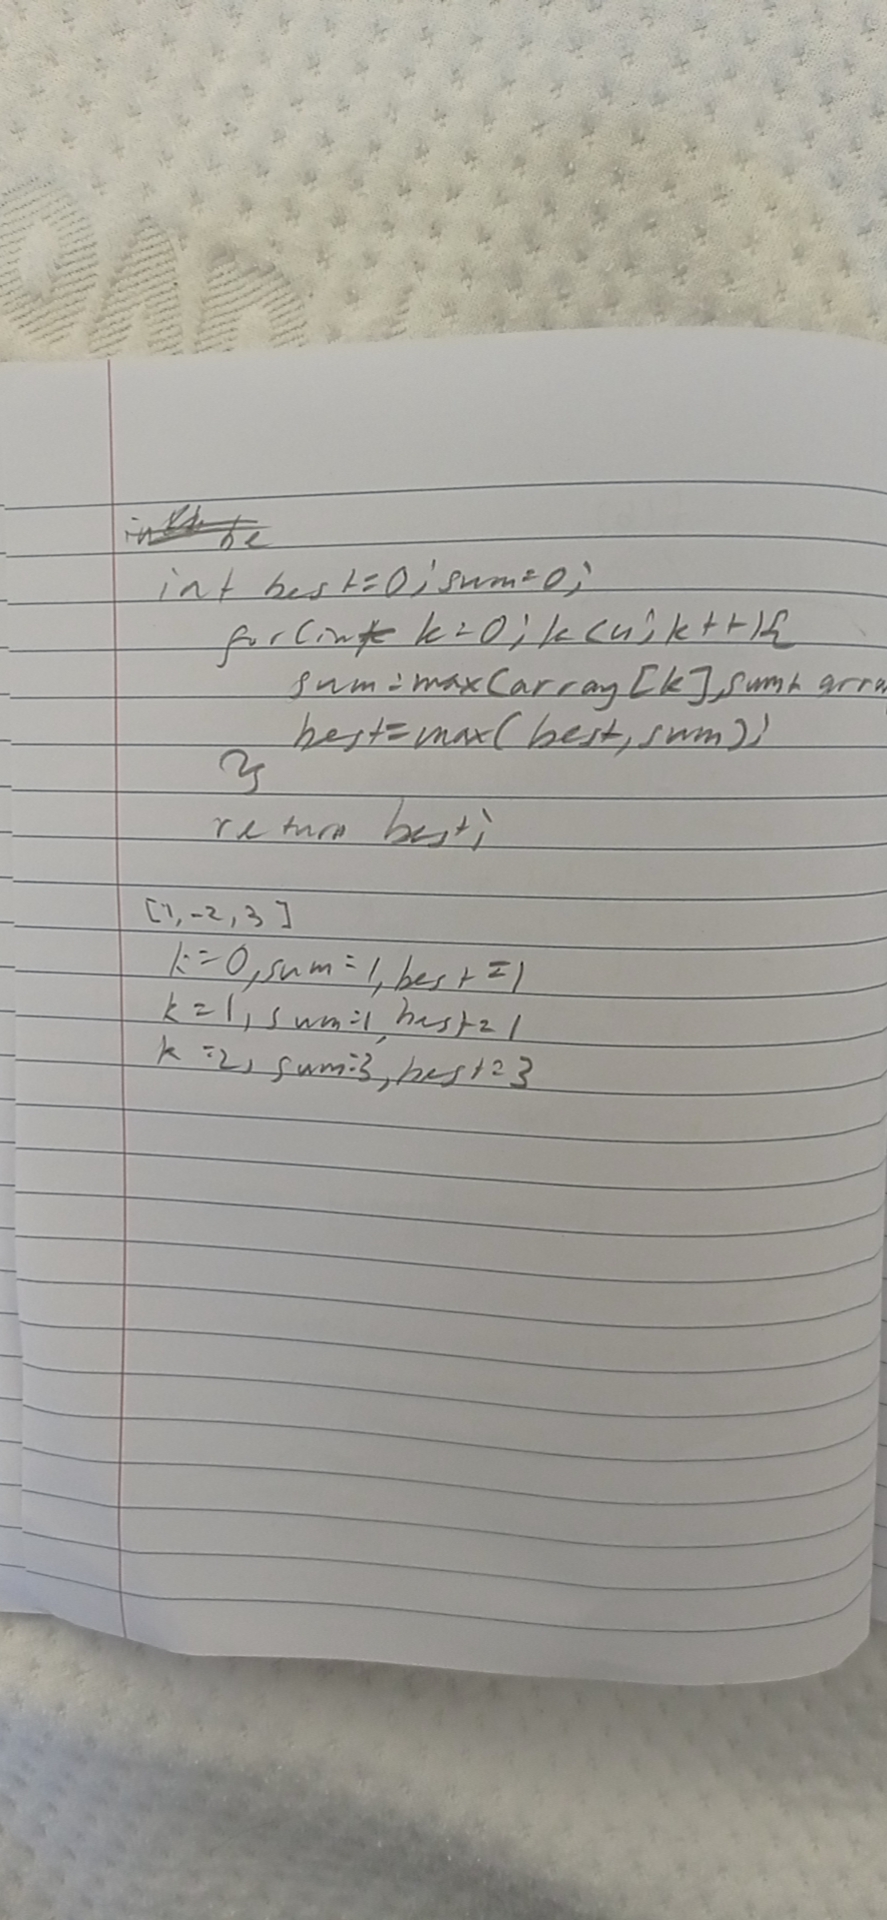 int best=0; sum=0;
for(int k=0; k<n; k++){
sum=max(array[k],sum+ arra
best=max(best,sum);
}
return best;
[1,-2,3]
k=0,sum=1,best=1
k=1, sum=1,best=1
k=2, sum=3,best=3